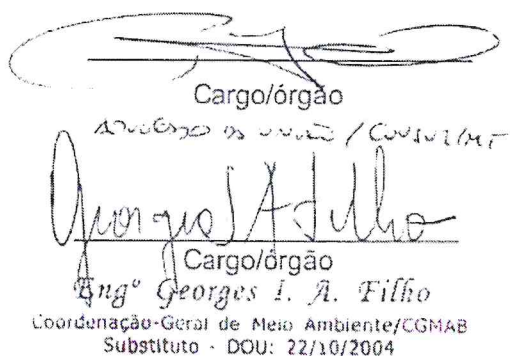 Cargo/órgão
/ CONJUR/MT
Georges I A Filho
Cargo/órgão
Engº Georges I. A. Filho
Coordenação-Geral de Meio Ambiente/CGMAB
Substituto - DOU: 22/10/2004